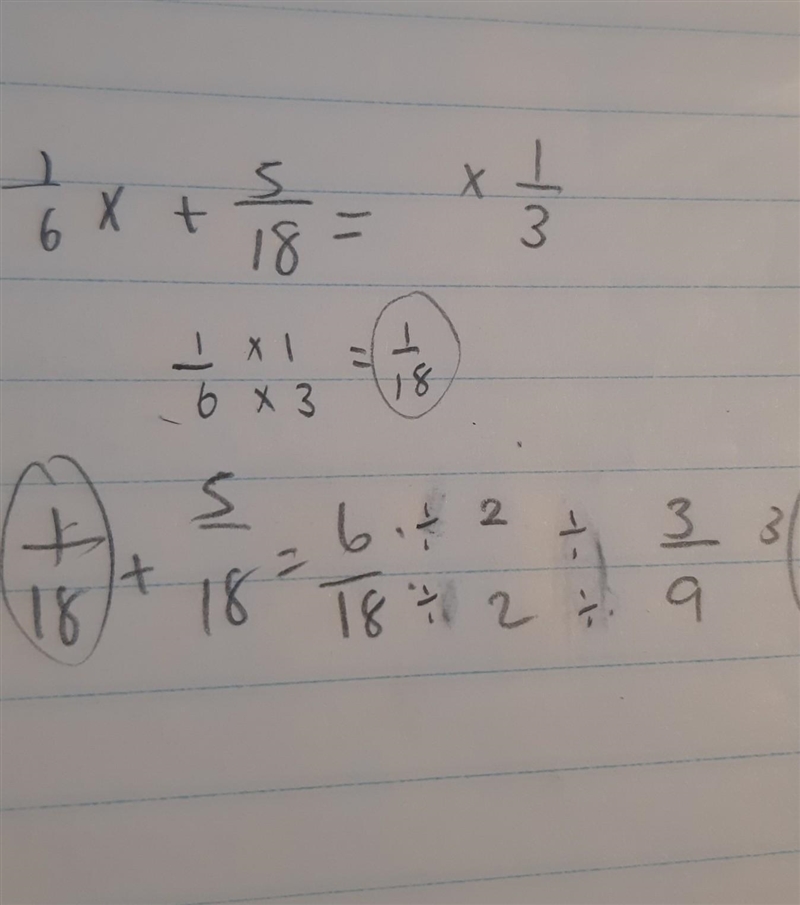 1/6 x + 5/18 = x 1/3
1/6 x 1 x 3 = 1/18
1/18 + 5/18 = 6/18 ÷ 2 ÷ 2 ÷ ÷ 3/9 3